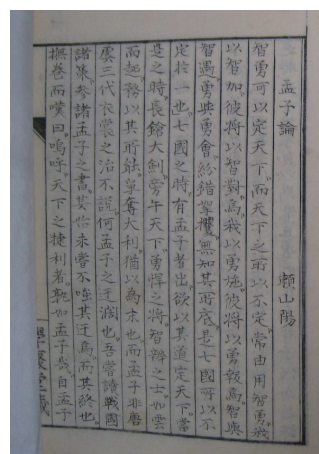 孟子論 頼山陽
智勇可以定天下。而天下之所以不定。常由用智勇。我
以智加。彼將以智對焉。我以勇施。彼將以勇報焉。智與
智遇。勇與勇會。紛錯 無知其所底。是七國所以不
定於一也。七國之時。有孟子者出。欲以其道定天下。當
是之時。長鎗大劍。旁午天下。勇悍之將。智辯之士。如雲
而起。務以其所能。爭奪大利。猶以為末也。而孟子非唐
虞三代衣裳之治不說。何孟子之迂濶也。吾嘗讀戰國
諸策。參諸孟子之書。其始未嘗不嗤其迂焉。而其終也。
撫卷而嘆曰。嗚呼。天下之捷利者。孰如孟子哉。自孟子